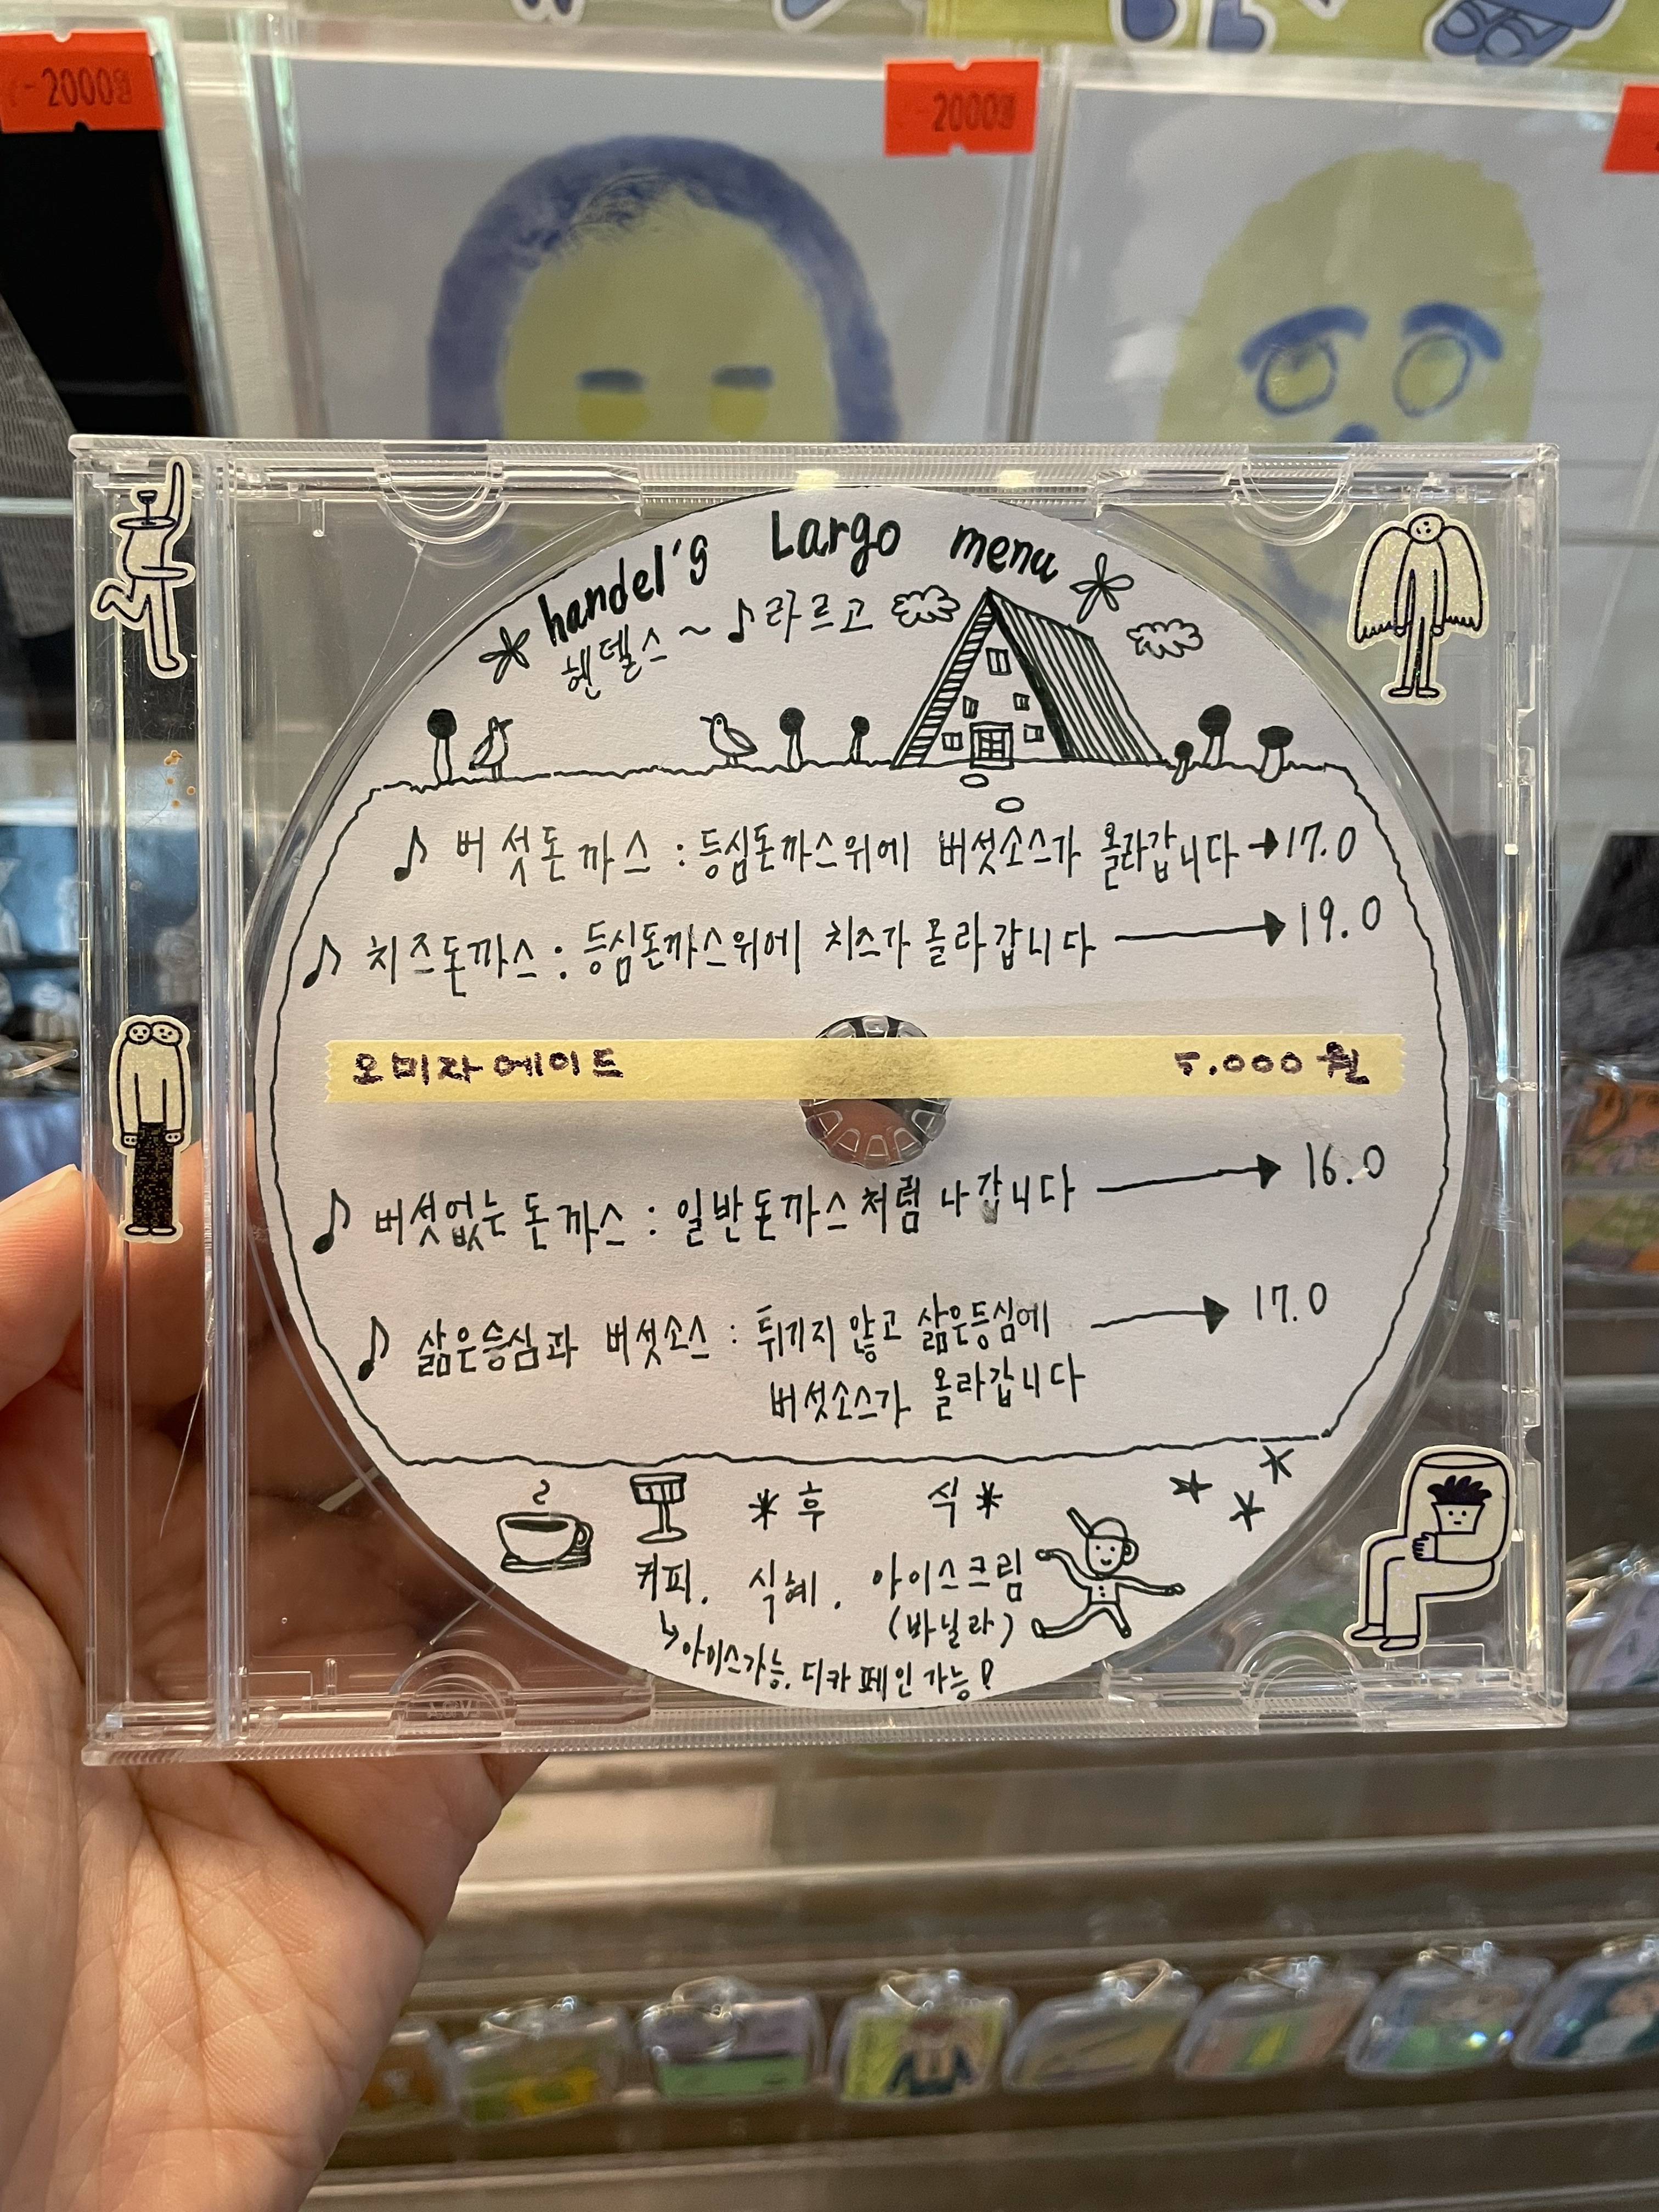 -2000원
2000원
handel's Largo menu
헨델스~♪라르고
♪ 버섯돈까스 : 등심돈까스위에 버섯소스가 올라갑니다 → 17.0
♪ 치즈돈까스 : 등심돈까스위에 치즈가 올라갑니다 → 19.0
오미자에이드 5.000원
♪ 버섯없는 돈까스 : 일반돈까스처럼 나갑니다 → 16.0
♪ 삶은등심과 버섯소스 : 튀기지 않고 삶은등심에 → 17.0
버섯소스가 올라갑니다
* 후 식 *
커피. 식혜. 아이스크림
(바닐라)
↳아이스가능. 디카페인 가능!